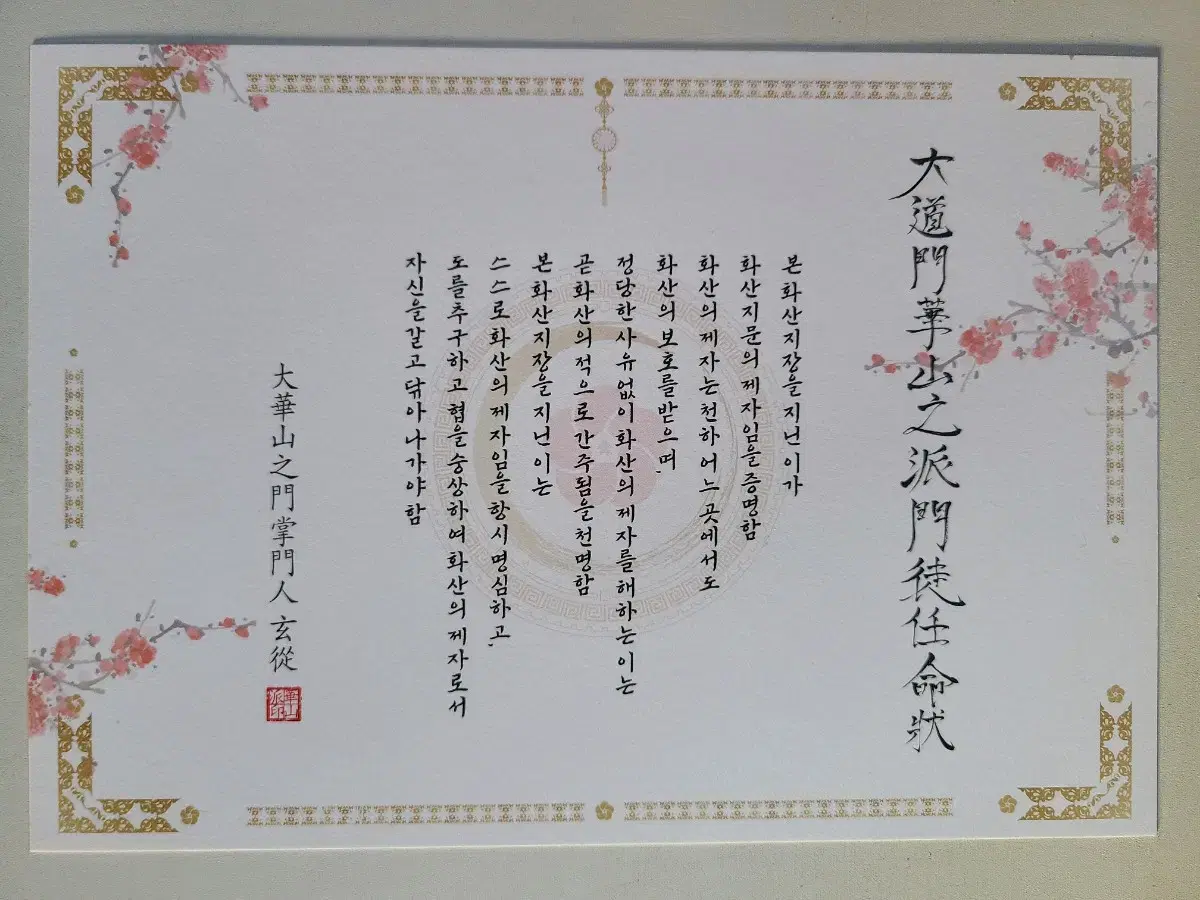 大道門華山之派門徒任命狀
본 화산지장을 지닌 이가
화산지문의 제자임을 증명함
화산의 제자는 천하 어느 곳에서도
화산의 보호를 받으며,
정당한 사유 없이 화산의 제자를 해하는 이는
곧 화산의 적으로 간주됨을 천명함
본 화산지장을 지닌 이는
스스로 화산의 제자임을 항시 명심하고,
도를 추구하고 협을 숭상하여 화산의 제자로서
자신을 갈고 닦아나가야 함
大華山之門掌門人 玄從
華山派印